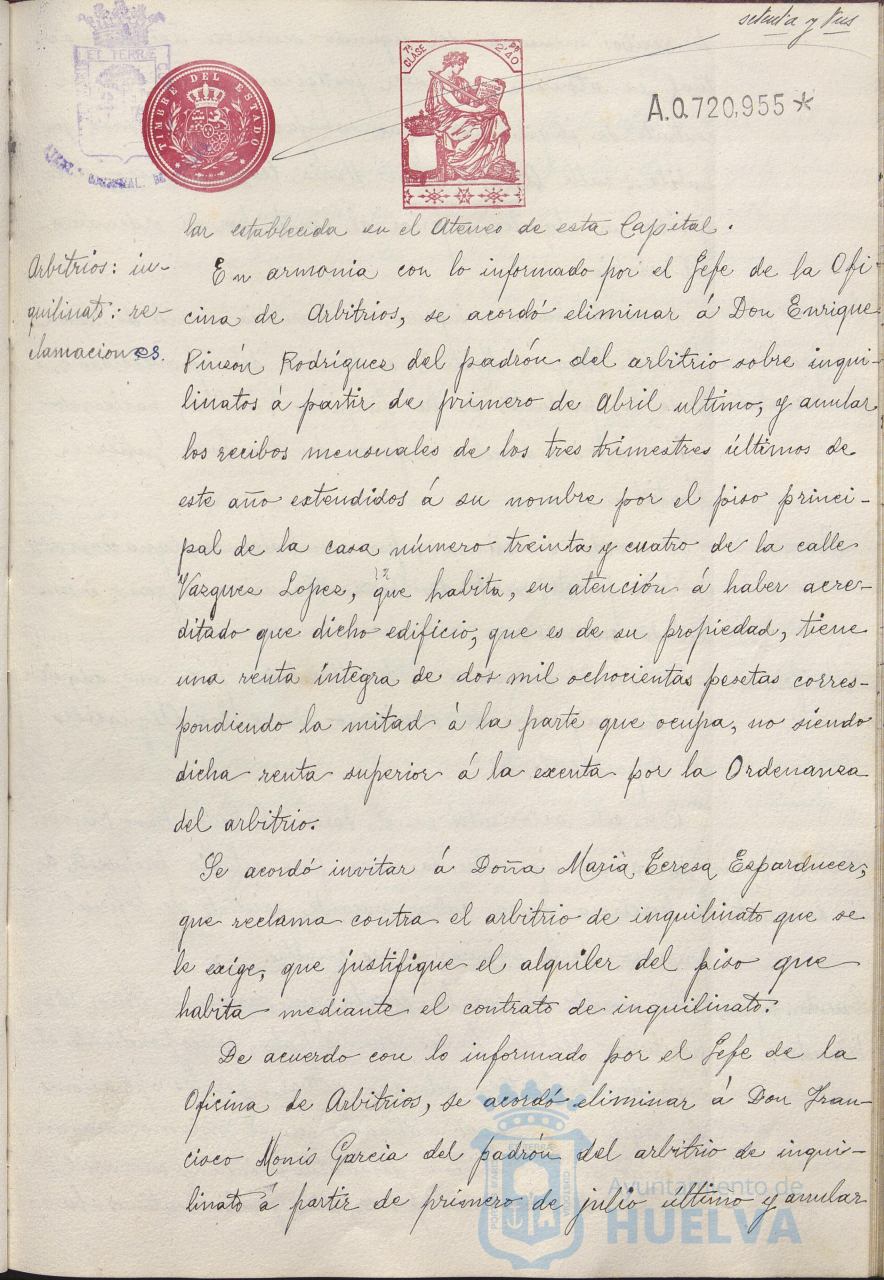 setenta y tres
ET TERRE
TIMBRE DEL ESTADO
7ª CLASE
2'40
A.0.720,955*
lar establecida en el Ateneo de esta Capital.
Arbitrios: in-
quilinato: re-
clamaciones.
En armonia con lo informado por el Jefe de la Ofi-
cina de Arbitrios, se acordó eliminar á Don Enrique
Pinzón Rodríguez del padrón del arbitrio sobre inqui-
linatos á partir de primero de Abril ultimo, y anular
los recibos mensuales de los tres trimestres últimos de
este año extendidos á su nombre por el piso princi-
pal de la casa número treinta y cuatro de la calle
Vazquez Lopez, que habita, en atención á haber acre-
ditado que dicho edificio, que es de su propiedad, tiene
una renta íntegra de dos mil ochocientas pesetas corres-
pondiendo la mitad á la parte que ocupa, no siendo
dicha renta superior á la exenta por la Ordenanza
del arbitrio.
Se acordó invitar á Doña María Teresa Esparducer,
que reclama contra el arbitrio de inquilinato que se
le exige, que justifique el alquiler del piso que
habita mediante el contrato de inquilinato.
De acuerdo con lo informado por el Jefe de la
Oficina de Arbitrios, se acordó eliminar á Don Fran-
cisco Monis Garcia del padrón del arbitrio de inqui-
linato á partir de primero de julio ultimo y anular
Ayuntamiento de
HUELVA